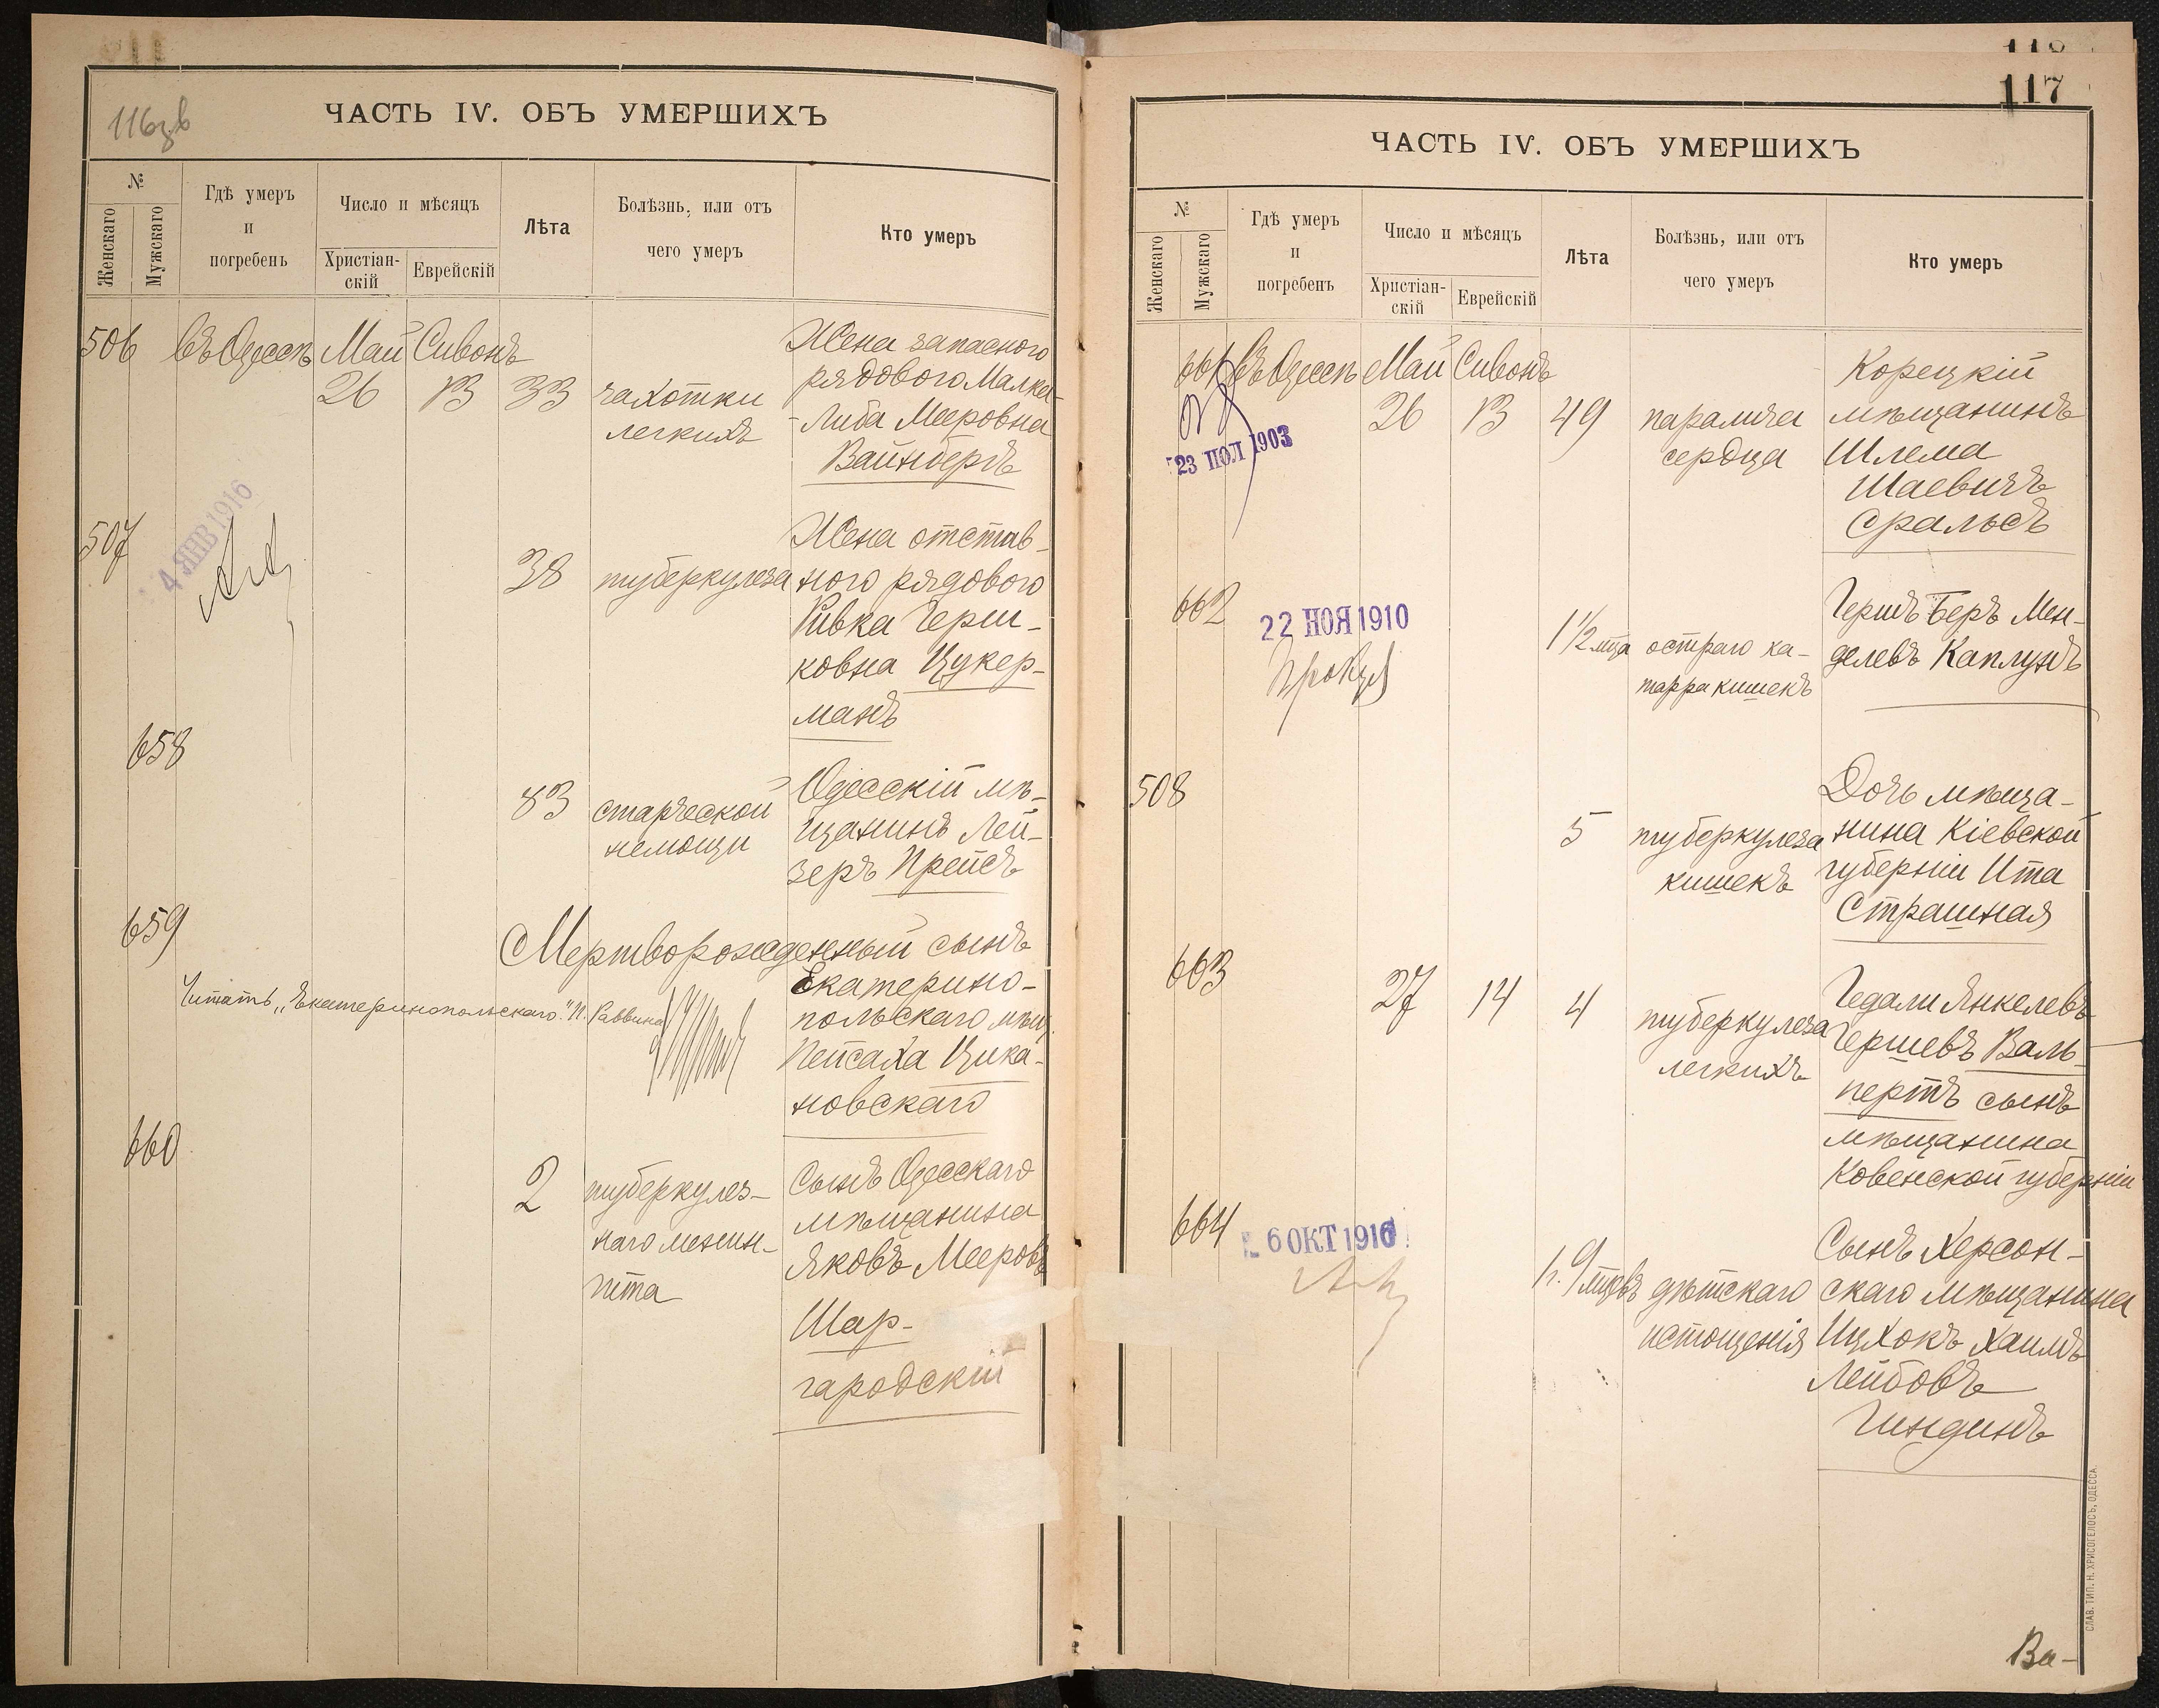 116об
ЧАСТЬ IV. ОБЪ УМЕРШИХЪ
№
Женскаго
Мужскаго
Гдѣ умеръ
и
погребень
Число и мѣсяцъ
Христіан-
скій
Еврейскій
Лѣта
Болѣзнь, или отъ
чего умеръ
Кто умеръ
506 въ Одессѣ Май Сивонъ
26 13 33
чахотки
легкихъ
Жена запасного
рядового Малка-
-Либа Мееровна
Вайнбергъ
507
4 ЯНВ 1916
38 туберкулеза
Жена отстав-
ного рядового
Ривка Герш-
ковна Цукер-
манъ
658
83 старческой
немощи
Одесскій мѣ-
щанинъ Лей-
зеръ Прейсъ
659
Мертворожденный сынъ
Екатерино-
польскаго мѣщ.
Пейсаха Цика-
новскаго
Читать „Екатеринопольскаго." И. Раввина
660
2 туберкулез-
наго менин-
гита
Сынъ Одесскаго
мѣщанина
Яковъ Мееровъ
Шар-
городскій
118
117
ЧАСТЬ IV. ОБЪ УМЕРШИХЪ
№
Женскаго
Мужскаго
Гдѣ умеръ
и
погребенъ
Число и мѣсяцъ
Христіан-
скій
Еврейскій
Лѣта
Болѣзнь, или отъ
чего умеръ
Кто умеръ
661 въ Одессѣ Май Сивонъ
23 ІЮЛ 1903
26 13 49 паралича
сердца
Корецкій
мѣщанинъ
Шлема
Шаевичъ
Сральсъ
662
22 НОЯ 1910
1½ мца остраго ка-
тарра кишекъ
Гершъ Беръ Мен-
делевъ Каплунъ
508
5 туберкулеза
кишекъ
Дочь мѣща-
нина Кіевской
губерніи Ита
Страшная
663
27 14 4 туберкулеза
легкихъ
Гедали Янкелевъ
Гершевъ Валь-
пертъ сынъ
мѣщанина
Ковенской губерніи
664
6 ОКТ 1916
1 г. 9 мцевъ дѣтскаго
истощенія
Сынъ Херсон-
скаго мѣщанина
Ицхокъ Хаимъ
Лейбовъ
Гиндинъ
Ва-
СЛАВ. ТИП. Н. ХРИСОГЕЛОСЪ, ОДЕССА